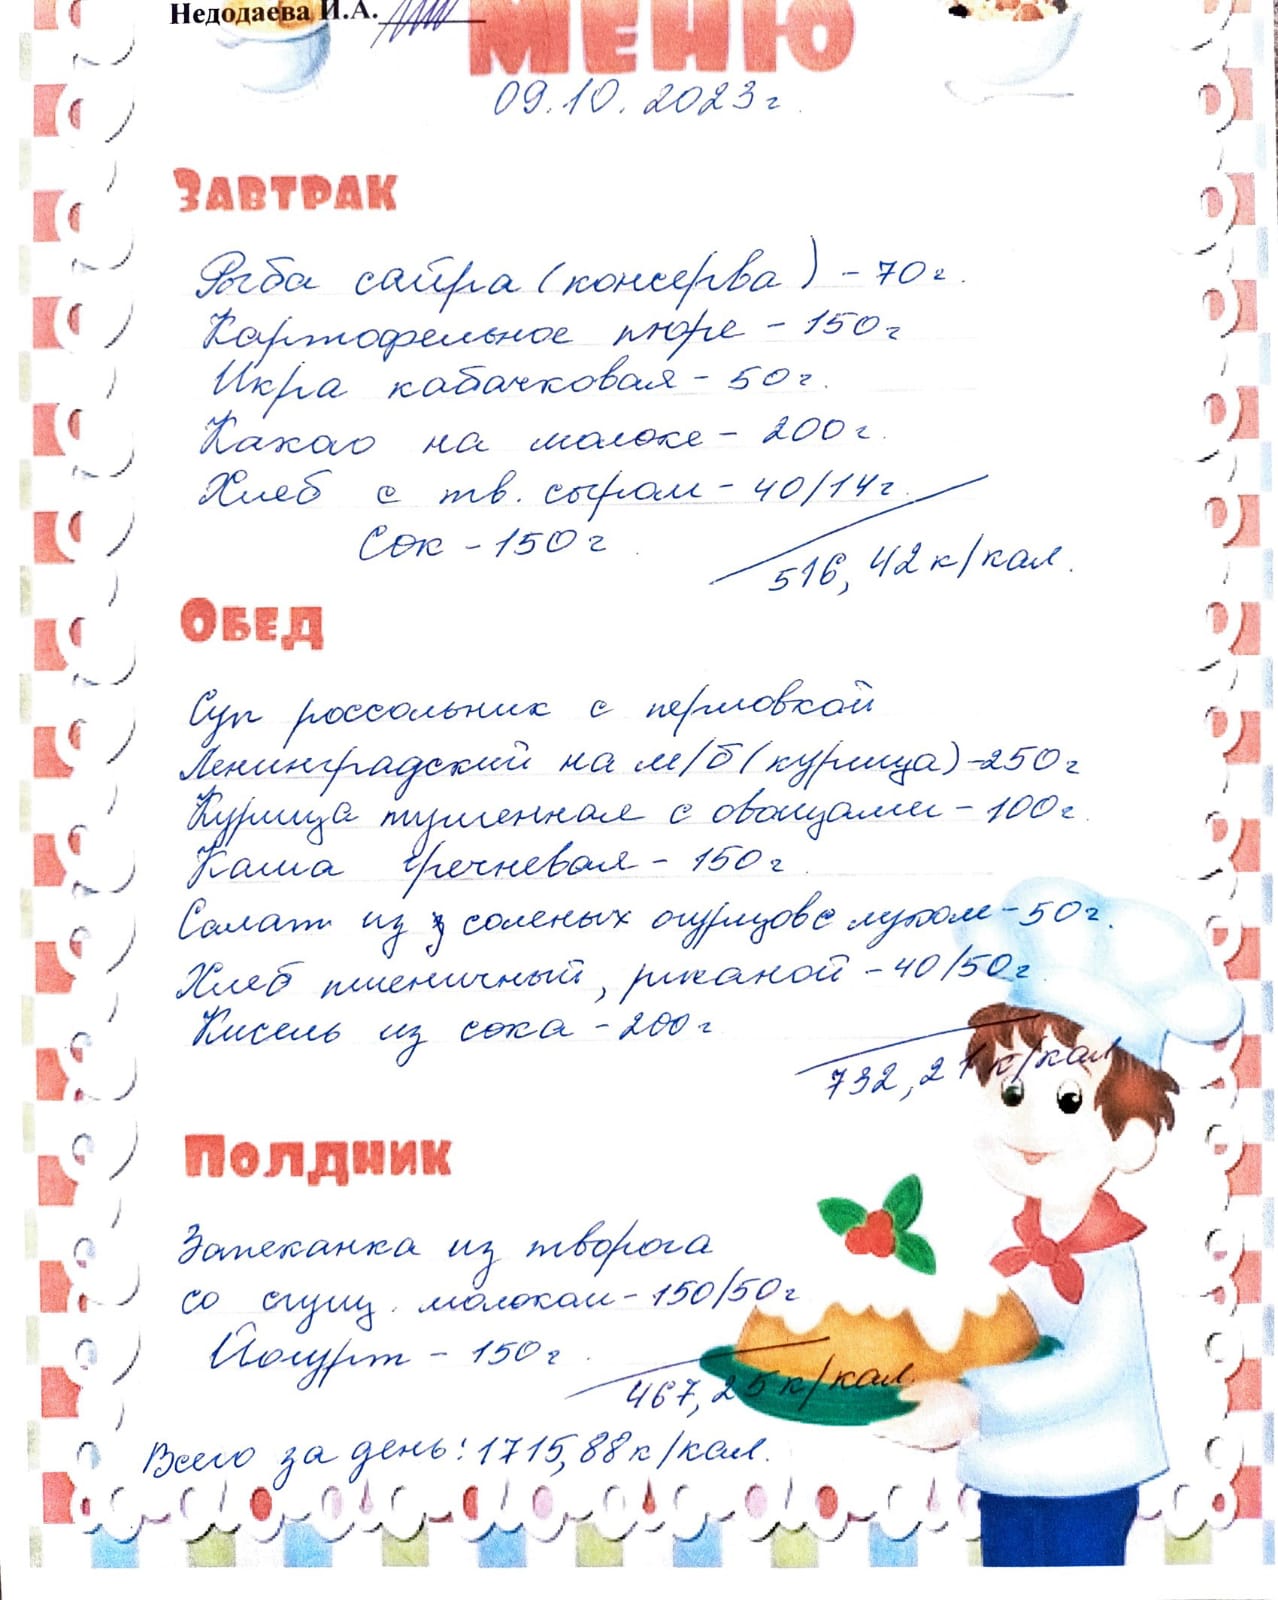 Недодаева И.А.
МЕНЮ
09.10.2023г.
ЗАВТРАК
Рыба сайра (консерва) - 70г.
Картофельное пюре - 150г
Икра кабачковая - 50г.
Какао на молоке - 200г.
Хлеб с тв. сыром - 40/14г.
Сок - 150г.
516,42 к/кал.
ОБЕД
Суп россольник с перловкой
Ленинградский на м/б (курица) - 250г
Курица тушенная с овощами - 100г.
Каша гречневая - 150г.
Салат из соленых огурцов с луком - 50г.
Хлеб пшеничный, ржаной - 40/50г
Кисель из сока - 200г
732,21 к/кал
ПОЛДНИК
Запеканка из творога
со сгущ. молоком - 150/50г
Йогурт - 150г.
467,25 к/кал.
Всего за день: 1715,88 к/кал.